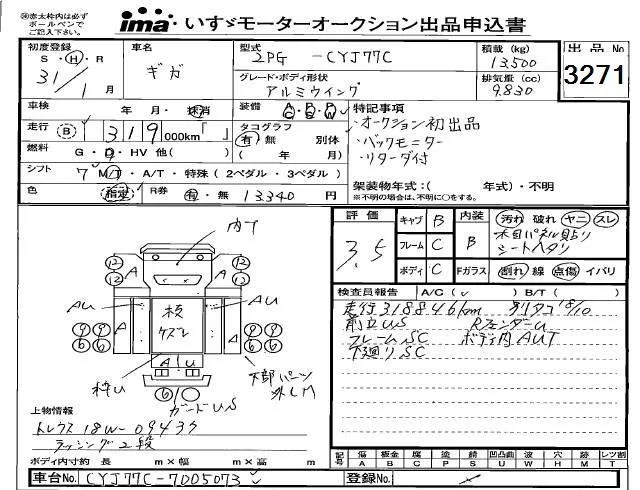 ㊟赤太枠内は必ず
ボールペンで
ご記入下さい。
ima いすゞモーターオークション出品申込書
初度登録 車名 型式 積載 (kg) 出品No
S・H・R 31/1月 ギガ 2PG -CYJ77C 13,500 3271
グレード・ボディ形状 排気量 (cc)
アルミウイング 9.830
車検 年・月・抹消 装備 特記事項
走行 B 319000km「 」 タコグラフ 有 無 別体 ・オークション初出品
燃料 G・D・HV 他( ) ( 年 月) ・バックモニター
シフト 7 M/T・A/T・特殊(2ペダル・3ペダル) ・リターダ付
色 指定 R券 有・無 13340円 架装物年式:( 年式)・不明
※不明の場合は、不明に○をする。
評価 キャブ B 内装 汚れ 破れ ヤニ スレ
3.5 フレーム C B 木目パネル貼り
シートヘタリ
ボディ C Fガラス 割れ 線 点傷 イバリ
検査員報告 A/C( ) B/T( )
走行318846km 別タコ18/10
前立US Rフェンダーu
フレームSC ボディ内AUT
下廻りSC
内T
12 A A 12
12 13
AU AU
枝
ケズレ
9 9 A A 9 9
6 6 6 6
A U
枠U 6 下部パーツ
外しM
ガードUS
上物情報
トレクス18W-09437
ラッシング2段
ボディ内寸約 長 m×幅 m×高 m
記号 傷 板金 腐 塗 錆 凹凸曲 波 穴 跡 レンズ割
A B C P S U W H M T
車台No. CYJ77C-7005073 登録No.